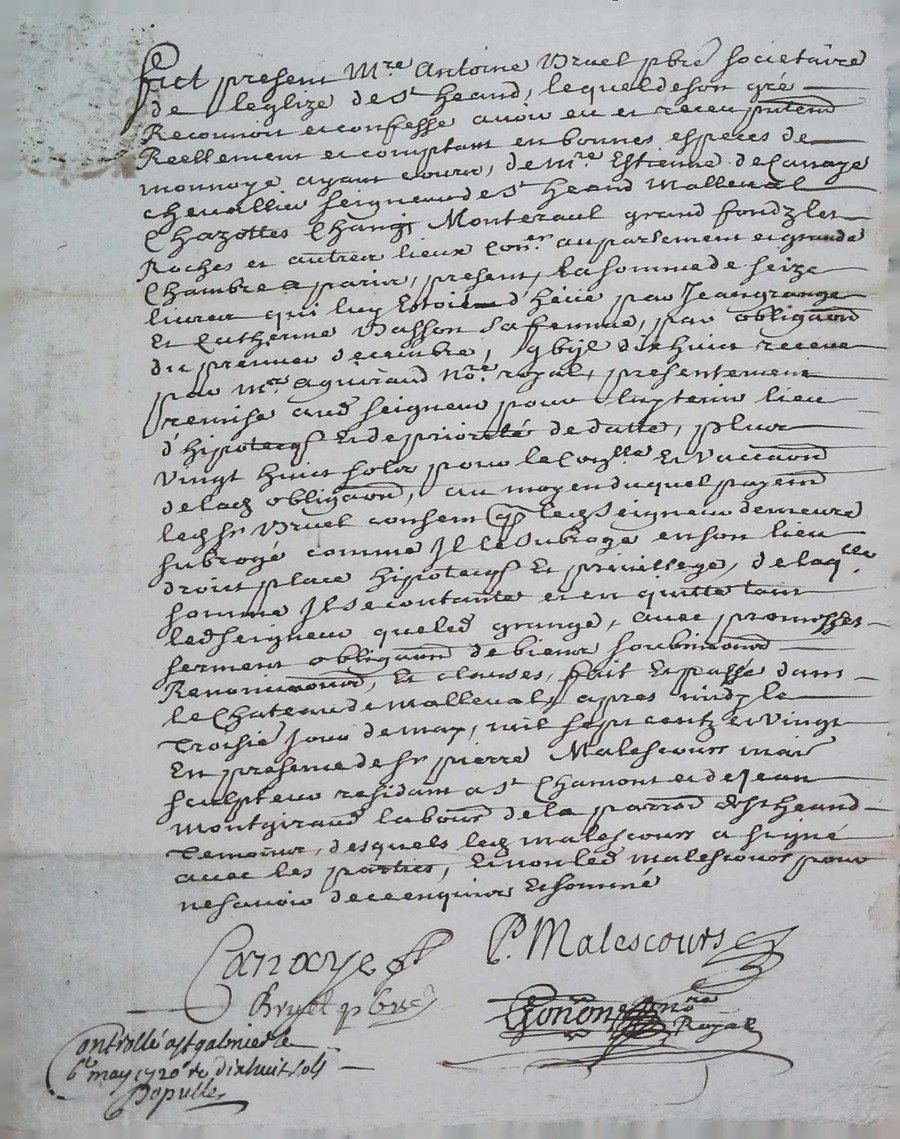 Fust present Mre Antoine Bruel pbre societaire
de leglize de st heand, lequel de son gré
Reconnoit et confesse avoir eu et receu putend
Reellement et comptant en bonnes especes de
monnoye ayant cours, de mre Estienne de Canaye
chevallier seigneur de st heand Malleval
Chazottes Changy Monteraul grand fondz les
Roches et autres lieux Coner au parlement et grande
Chambre a paris, present, la somme de seize
livres qui luy estoit d'heüe par Jean grange
Et Catherine Basson sa femme, par obligaõn
du premier decembre, gbijc dixhuict receue
par mre aguiraud Nore royal, presentement
remise aud seigneur pour luy tenir lieu
d'hipotecq Et de priorité de datte, plus
vingt huict solz pour le et vaccaõn
de lad obligaõn, au moyen duquel payemt
led sr Bruel consent q led seigneur demeure
subrogé comme Il le subroge en son lieu
droict place hipotecq Et privillege, de laqlle
somme Il se contante et en quitte tant
led seigneur que led grange, avec promesses
serment obligaõn de biens soubmons
Renonciaõns, Et clauses, fait Et passé dans
le Chateau de Malleval, apres midy le
Troisie jour de may, mil sept centz et vingt
En presence de sr pierre Malescours mais
sculpteur residant a st Chamont et de Jean
montgiraud labour de la parroi de st heand
Temoins, desquels led malescours a signé
avec les parties, et non led malescours pour
ne savoir de ce enquis Et sommé
Canaye
P. Malescours
Bruel pbre
Gonon no re
Royal
Controllé a st galmier le
6e may 1720 rc dixhuit sols
Populle